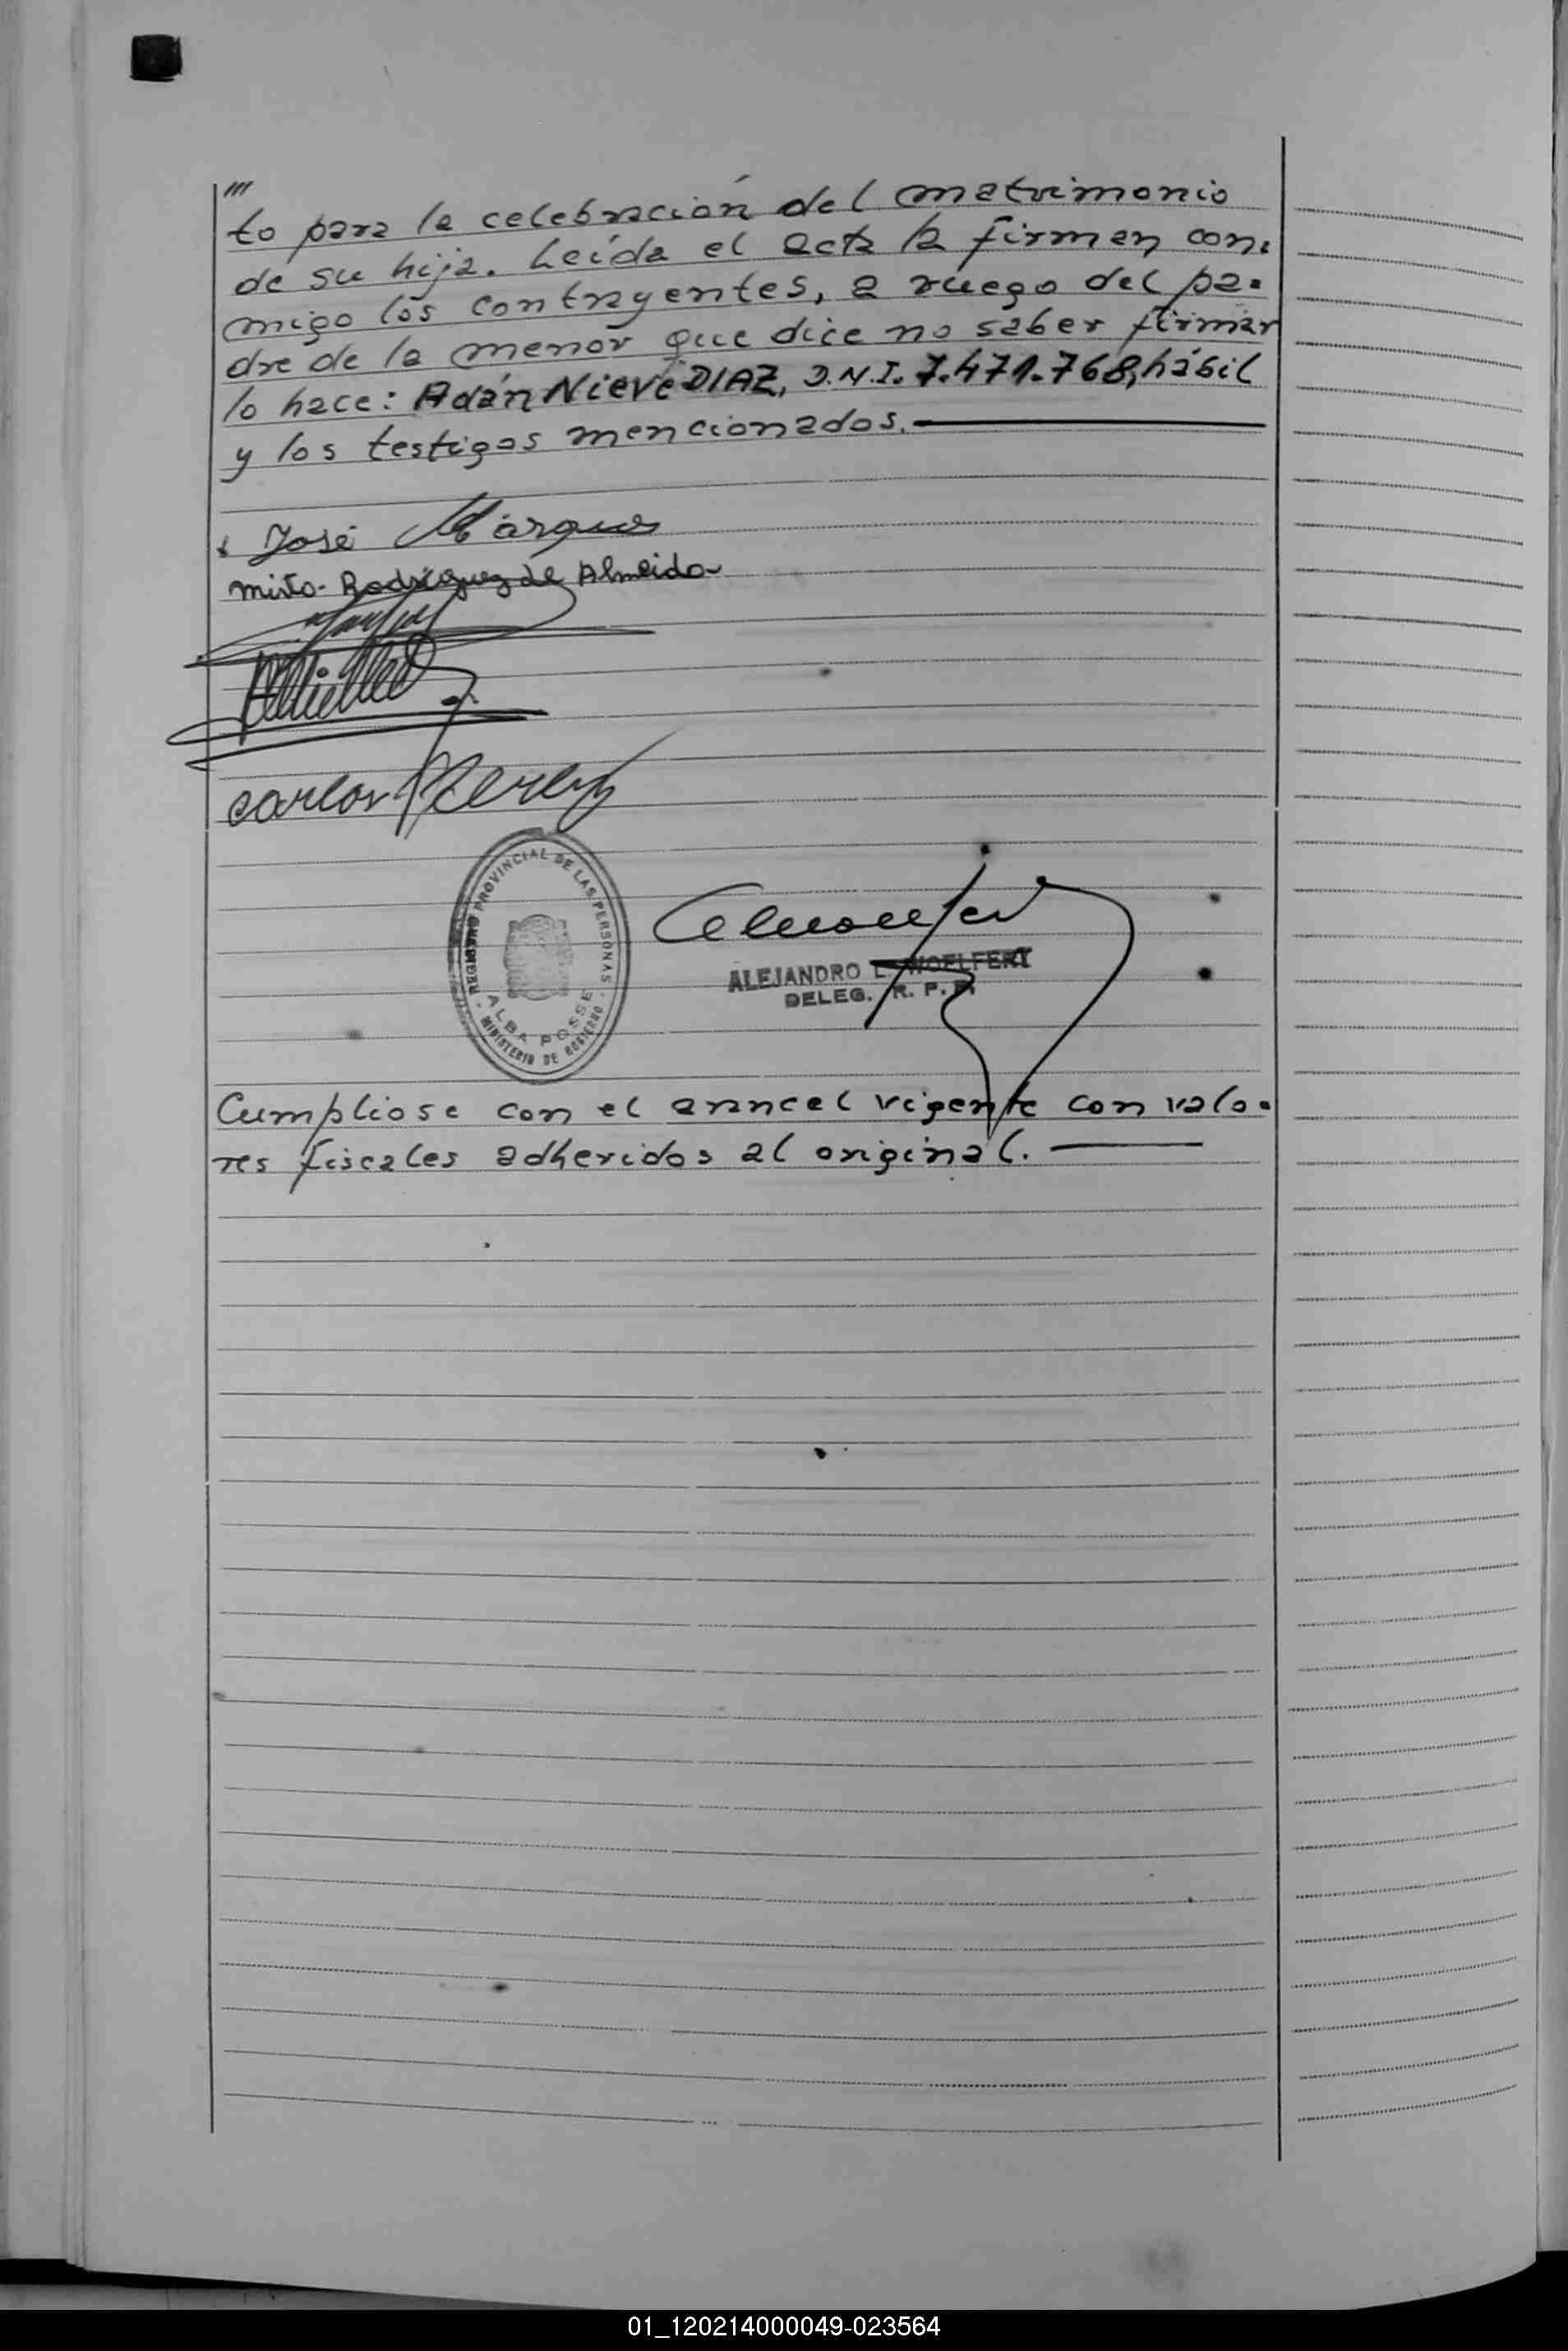 ///
to para la celebración del matrimonio
de su hija. Leída el acta la firman con-
migo los contrayentes, a ruego del pa-
dre de la menor que dice no saber firmar
lo hace: Adán Nieve DIAZ, D.N.I. 7.471.768, hábil
y los testigos mencionados.
José Márques
Rodríguez de Almeida
Carlos
REGISTRO PROVINCIAL DE LAS PERSONAS
ALBA POSSE
MINISTERIO DE GOBIERNO
ALEJANDRO L. WOELFERT
DELEG. R. P. P.
Cumpliose con el arancel vigente con valo-
res fiscales adheridos al original.
01_120214000049-023564